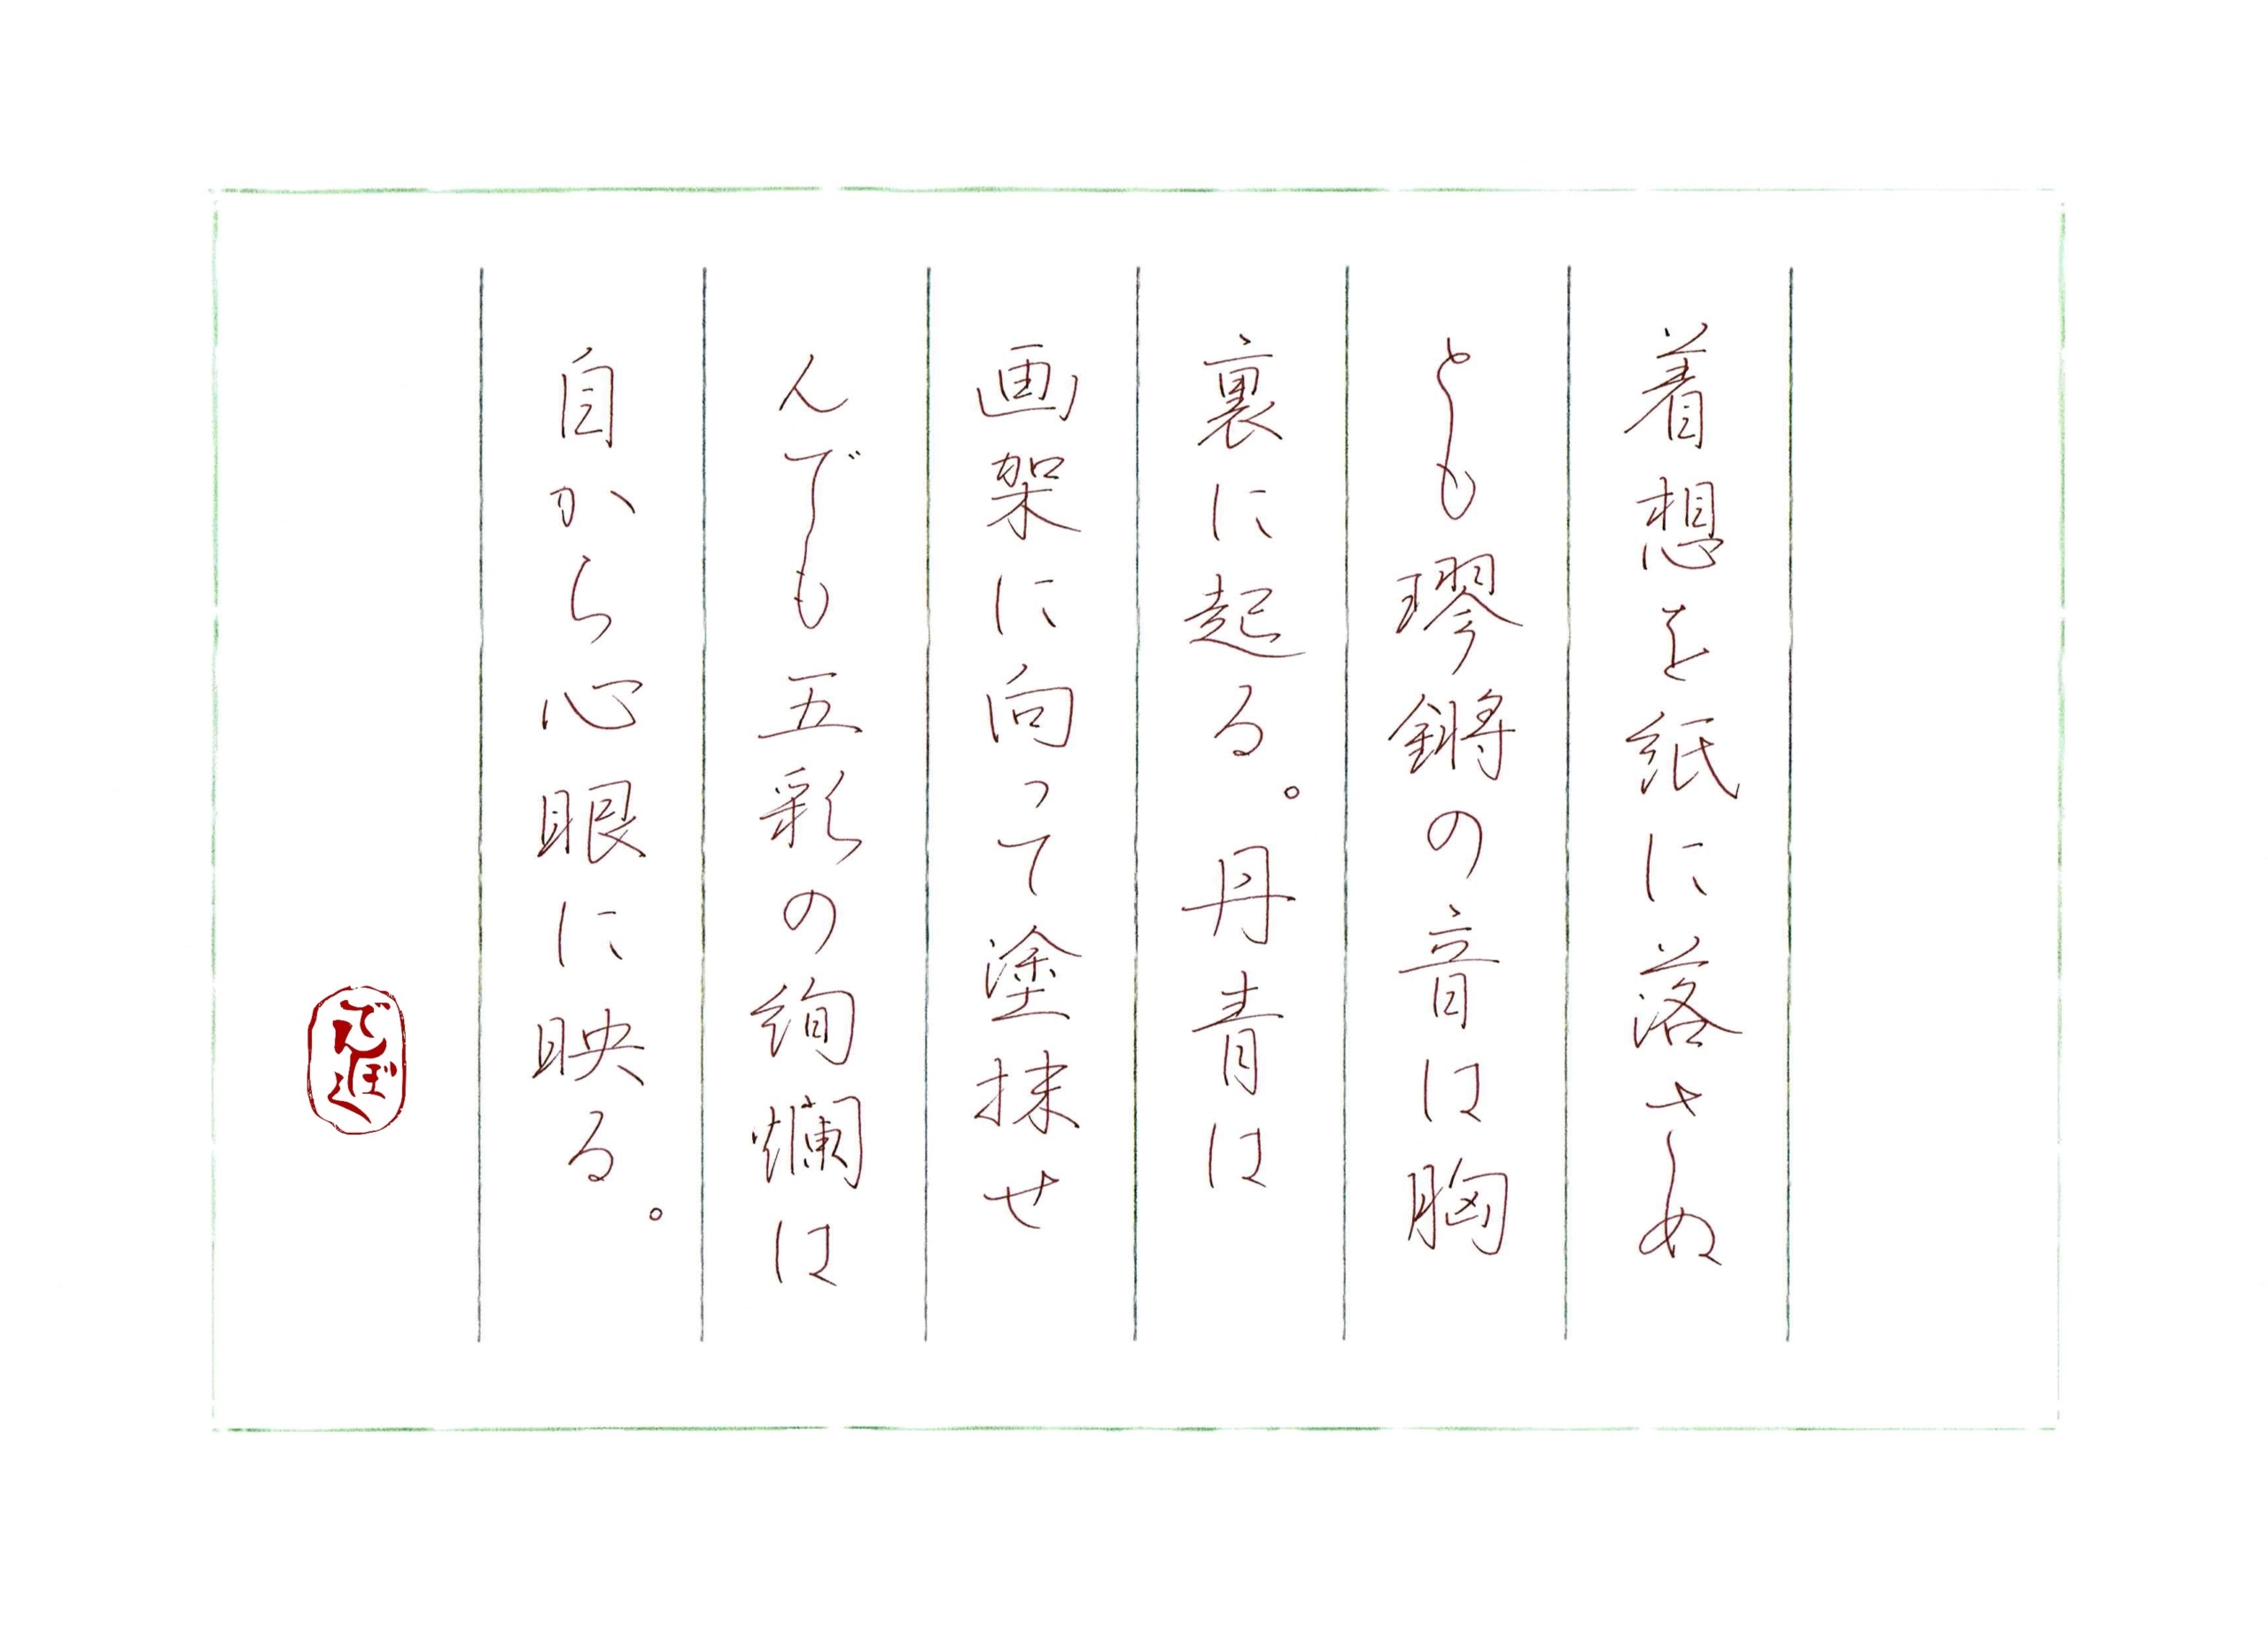 着想を紙に落さぬ
とも璆鏘の音は胸
裏に起る。丹青は
画架に向って塗抹せ
んでも五彩の絢爛は
自から心眼に映る。
でんぼく